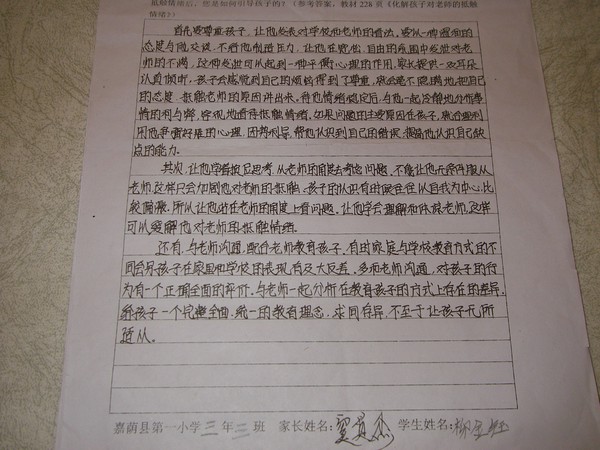 抵触情绪后，您是如何引导孩子的？（参考答案，教材228页《化解孩子对老师的抵触
情绪》）
首先要尊重孩子，让他发表对学校和老师的看法，要以一种温和的
态度与他交谈，不给他制造压力，让他在宽松、自由的氛围中发泄对老
师的不满，这种发泄可以起到一种平衡心理的作用，家长提供一双耳朵
认真倾听，孩子会感觉到自己的烦恼得到了尊重，就会毫不隐瞒地把自己
的态度、抵触老师的原因讲出来。待他情绪稳定后，与他一起冷静地分析事
情的利与弊，客观地看待抵触情绪，如果问题的主要原因在孩子，就合理利
用他争强好胜的心理，因势利导，帮他认识到自己的错误，提高他认识自己缺
点的能力。
其次，让他学着换位思考，从老师的角度去考虑问题，不能让他无条件服从
老师，这样只会加剧他对老师的抵触。孩子的认识有时候往往以自我为中心，比
较偏激，所以让他站在老师的角度上看问题，让他学会理解和体谅老师，这样
可以缓解他对老师的抵触情绪。
还有，与老师沟通，配合老师教育孩子，有时家庭与学校教育方式的不
同会导孩子在家里和学校的表现有及大反差，多和老师沟通，对孩子的行
为有一个正确全面的评价。与老师一起分析在教育孩子的方式上存在的差异，
给孩子一个完整全面、统一的教育理念，求同存异，不至于让孩子无所
适从。
嘉荫县第一小学三年三班 家长姓名： 学生姓名：柳